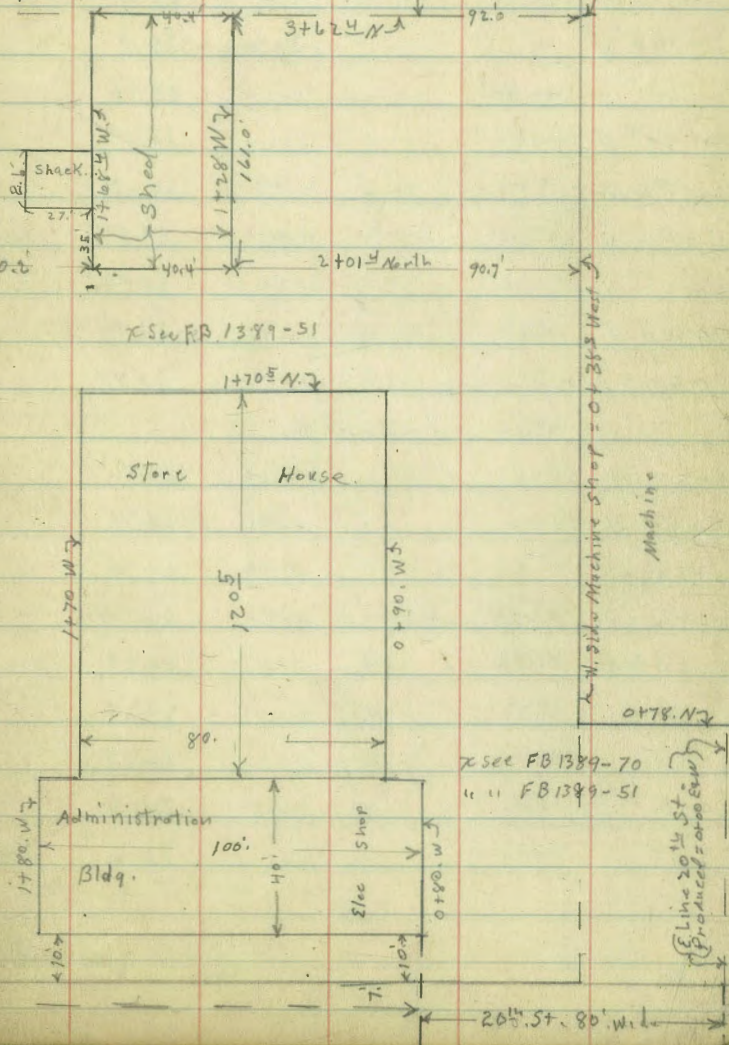 40.4'
3+62 4 N
92.0
shack.
27.
35'
1+68 4 W.
Shed
1+28 W
161.0'
40.4'
2+01 4 North
90.7'
x See F.B. 1389-51
1+70 5 N.
Store House.
1+70 W
120 5
0+90. W
W. Side Machine Shop = 0+38 8 West
Machine
0+78. N
80.
x see FB 1389-70
" " FB 1389-51
Administration
Bldg.
1+80. W
100'.
40'
Elec Shop
0+80. W
10'.
10'.
7.'
Line 20th St.
Produced = 0+00 E&W
20th St. 80' Wide